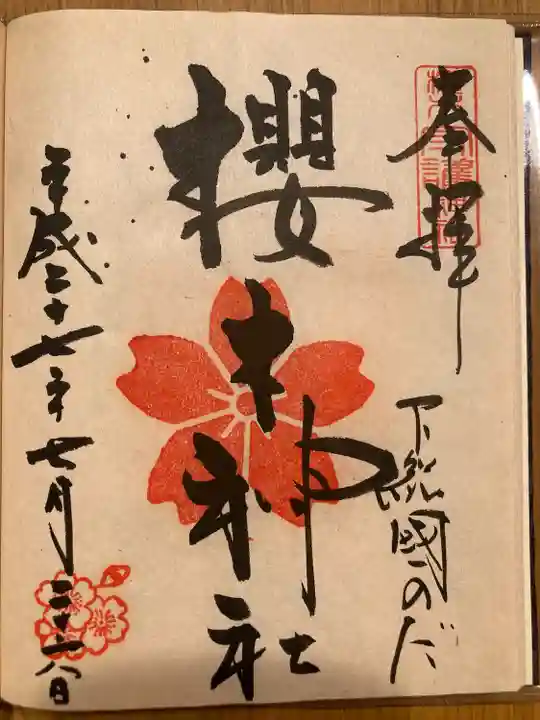 奉拝
下総國のだ
櫻木神社
平成二十七年七月二十八日